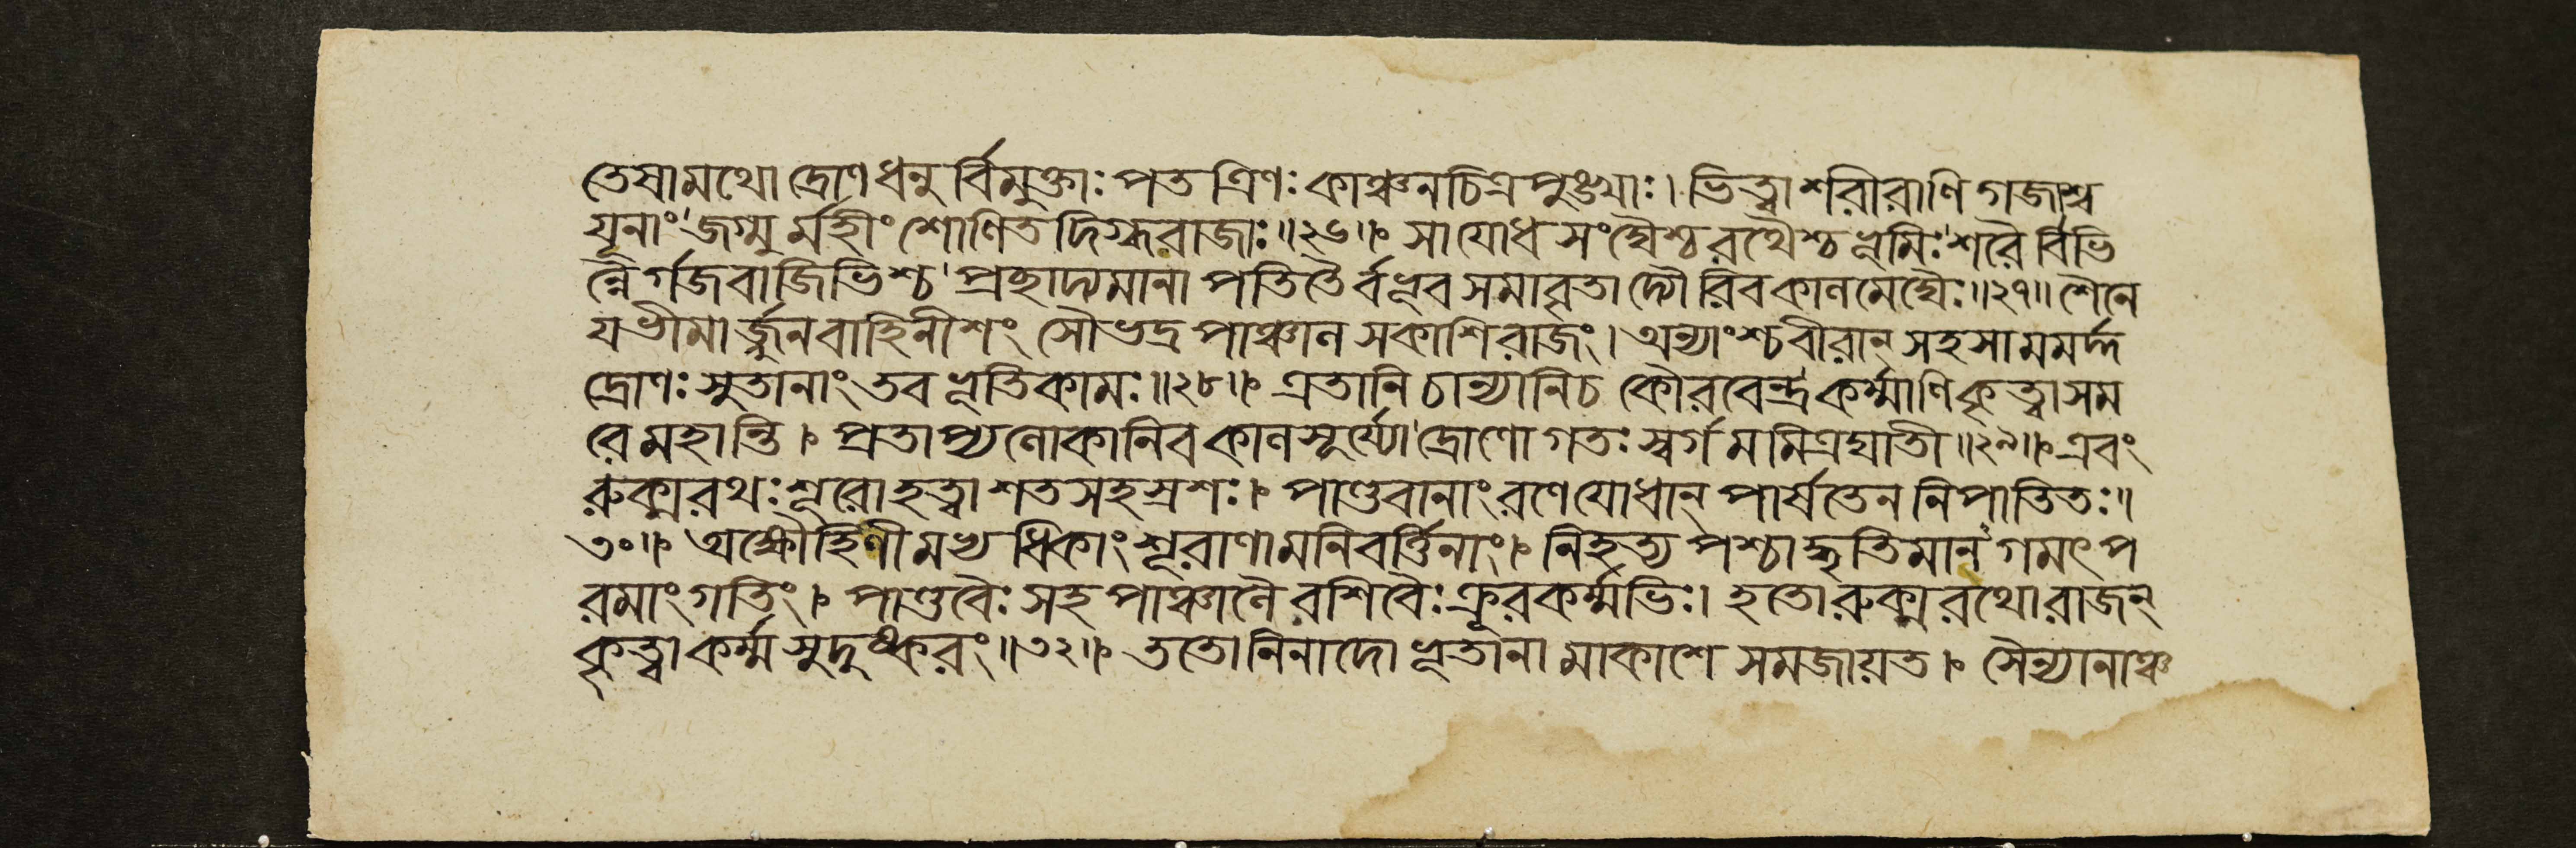 তেষামথো দ্রোণধনুর্বিমুক্তাঃ পতত্রিণঃ কাঞ্চনচিত্রপুঙ্খাঃ। ভিত্ত্বা শরীরাণি গজাশ্ব
যূনাং জগ্মুর্মহীং শোণিতদিগ্ধরাজাঃ॥২৬॥ সা যোধসংঘৈশ্চ রথৈশ্চ ভূমিঃ শরৈর্বিভি
ন্নৈর্গজবাজিভিশ্চ প্রচ্ছাদ্যমানা পতিতৈর্বভূব সমাবৃতা দ্যৌরিব কালমেঘৈঃ॥২৭॥ শৈনে
যভীমার্জ্জুনবাহিনীশং সৌভদ্রপাঞ্চালসকাশিরাজং। অন্যাংশ্চ বীরান্ সহসা মমর্দ্দ
দ্রোণঃ সুতানাং তব ভূতিকামঃ॥২৮॥ এতানি চান্যানি চ কৌরবেন্দ্র কর্ম্মাণি কৃত্ত্বা সম
রে মহান্তি। প্রতাপ্য লোকানিব কালসূর্য্যো দ্রোণো গতঃ স্বর্গমমিত্রঘাতী॥২৯॥ এবং
রুক্মরথঃ শূরো হত্ত্বা শতসহস্রশঃ। পাণ্ডবানাং রণে যোধান্ পার্ষতেন নিপাতিতঃ॥
৩০॥ অক্ষৌহিণীমভ্যধিকাং শূরাণামনিবর্ত্তিনাং। নিহত্য পশ্চাদ্ধৃতিমানগমৎ প
রমাং গতিং। পাণ্ডবৈঃ সহ পাঞ্চালৈরশিবৈঃ ক্রূরকর্ম্মভিঃ। হতো রুক্মরথো রাজন্
কৃত্ত্বা কর্ম্ম সুদুষ্করং॥৩২॥ ততো নিনাদো ভূতানামাকাশে সমজায়ত। সৈন্যানাঞ্চ